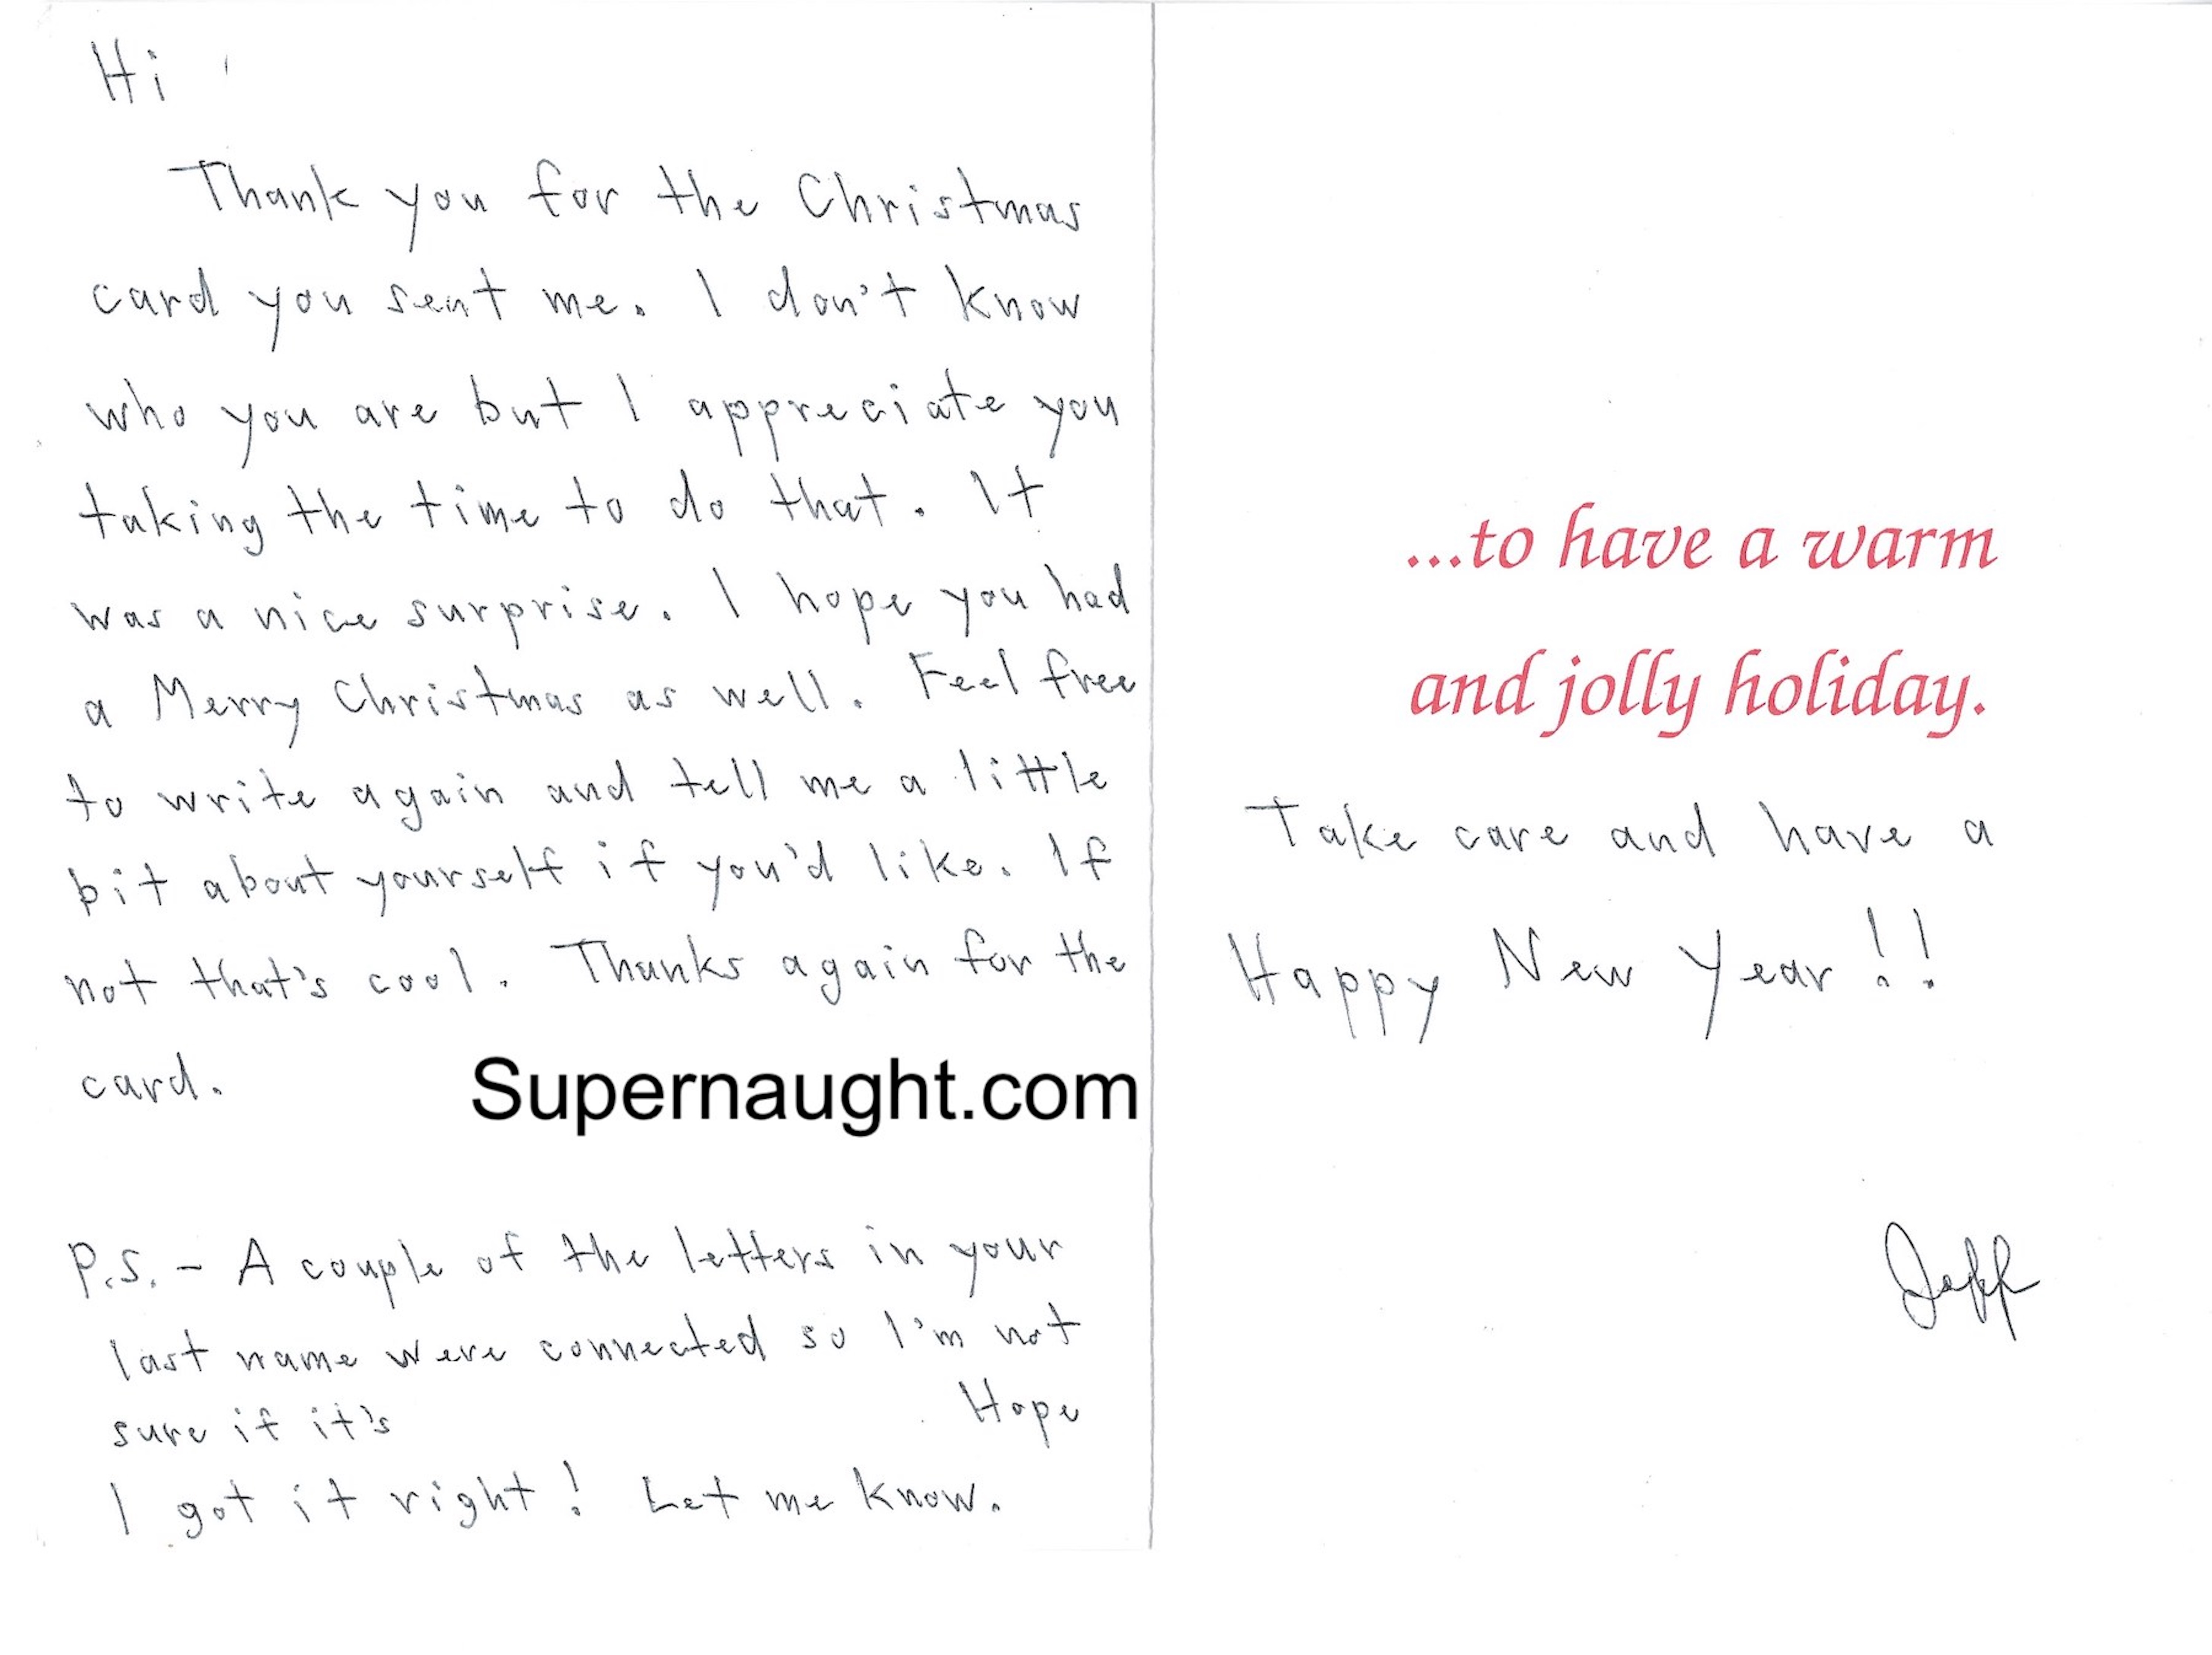 Hi
Thank you for the Christmas
card you sent me. I don't know
who you are but I appreciate you
taking the time to do that. It
was a nice surprise. I hope you had
a Merry Christmas as well. Feel free
to write again and tell me a little
bit about yourself if you'd like. If
not that's cool. Thanks again for the
card.
Supernaught.com
P.S. - A couple of the letters in your
last name were connected so I'm not
sure if it's Hope
I got it right! Let me know.
...to have a warm
and jolly holiday.
Take care and have a
Happy New Year!!
Jeff